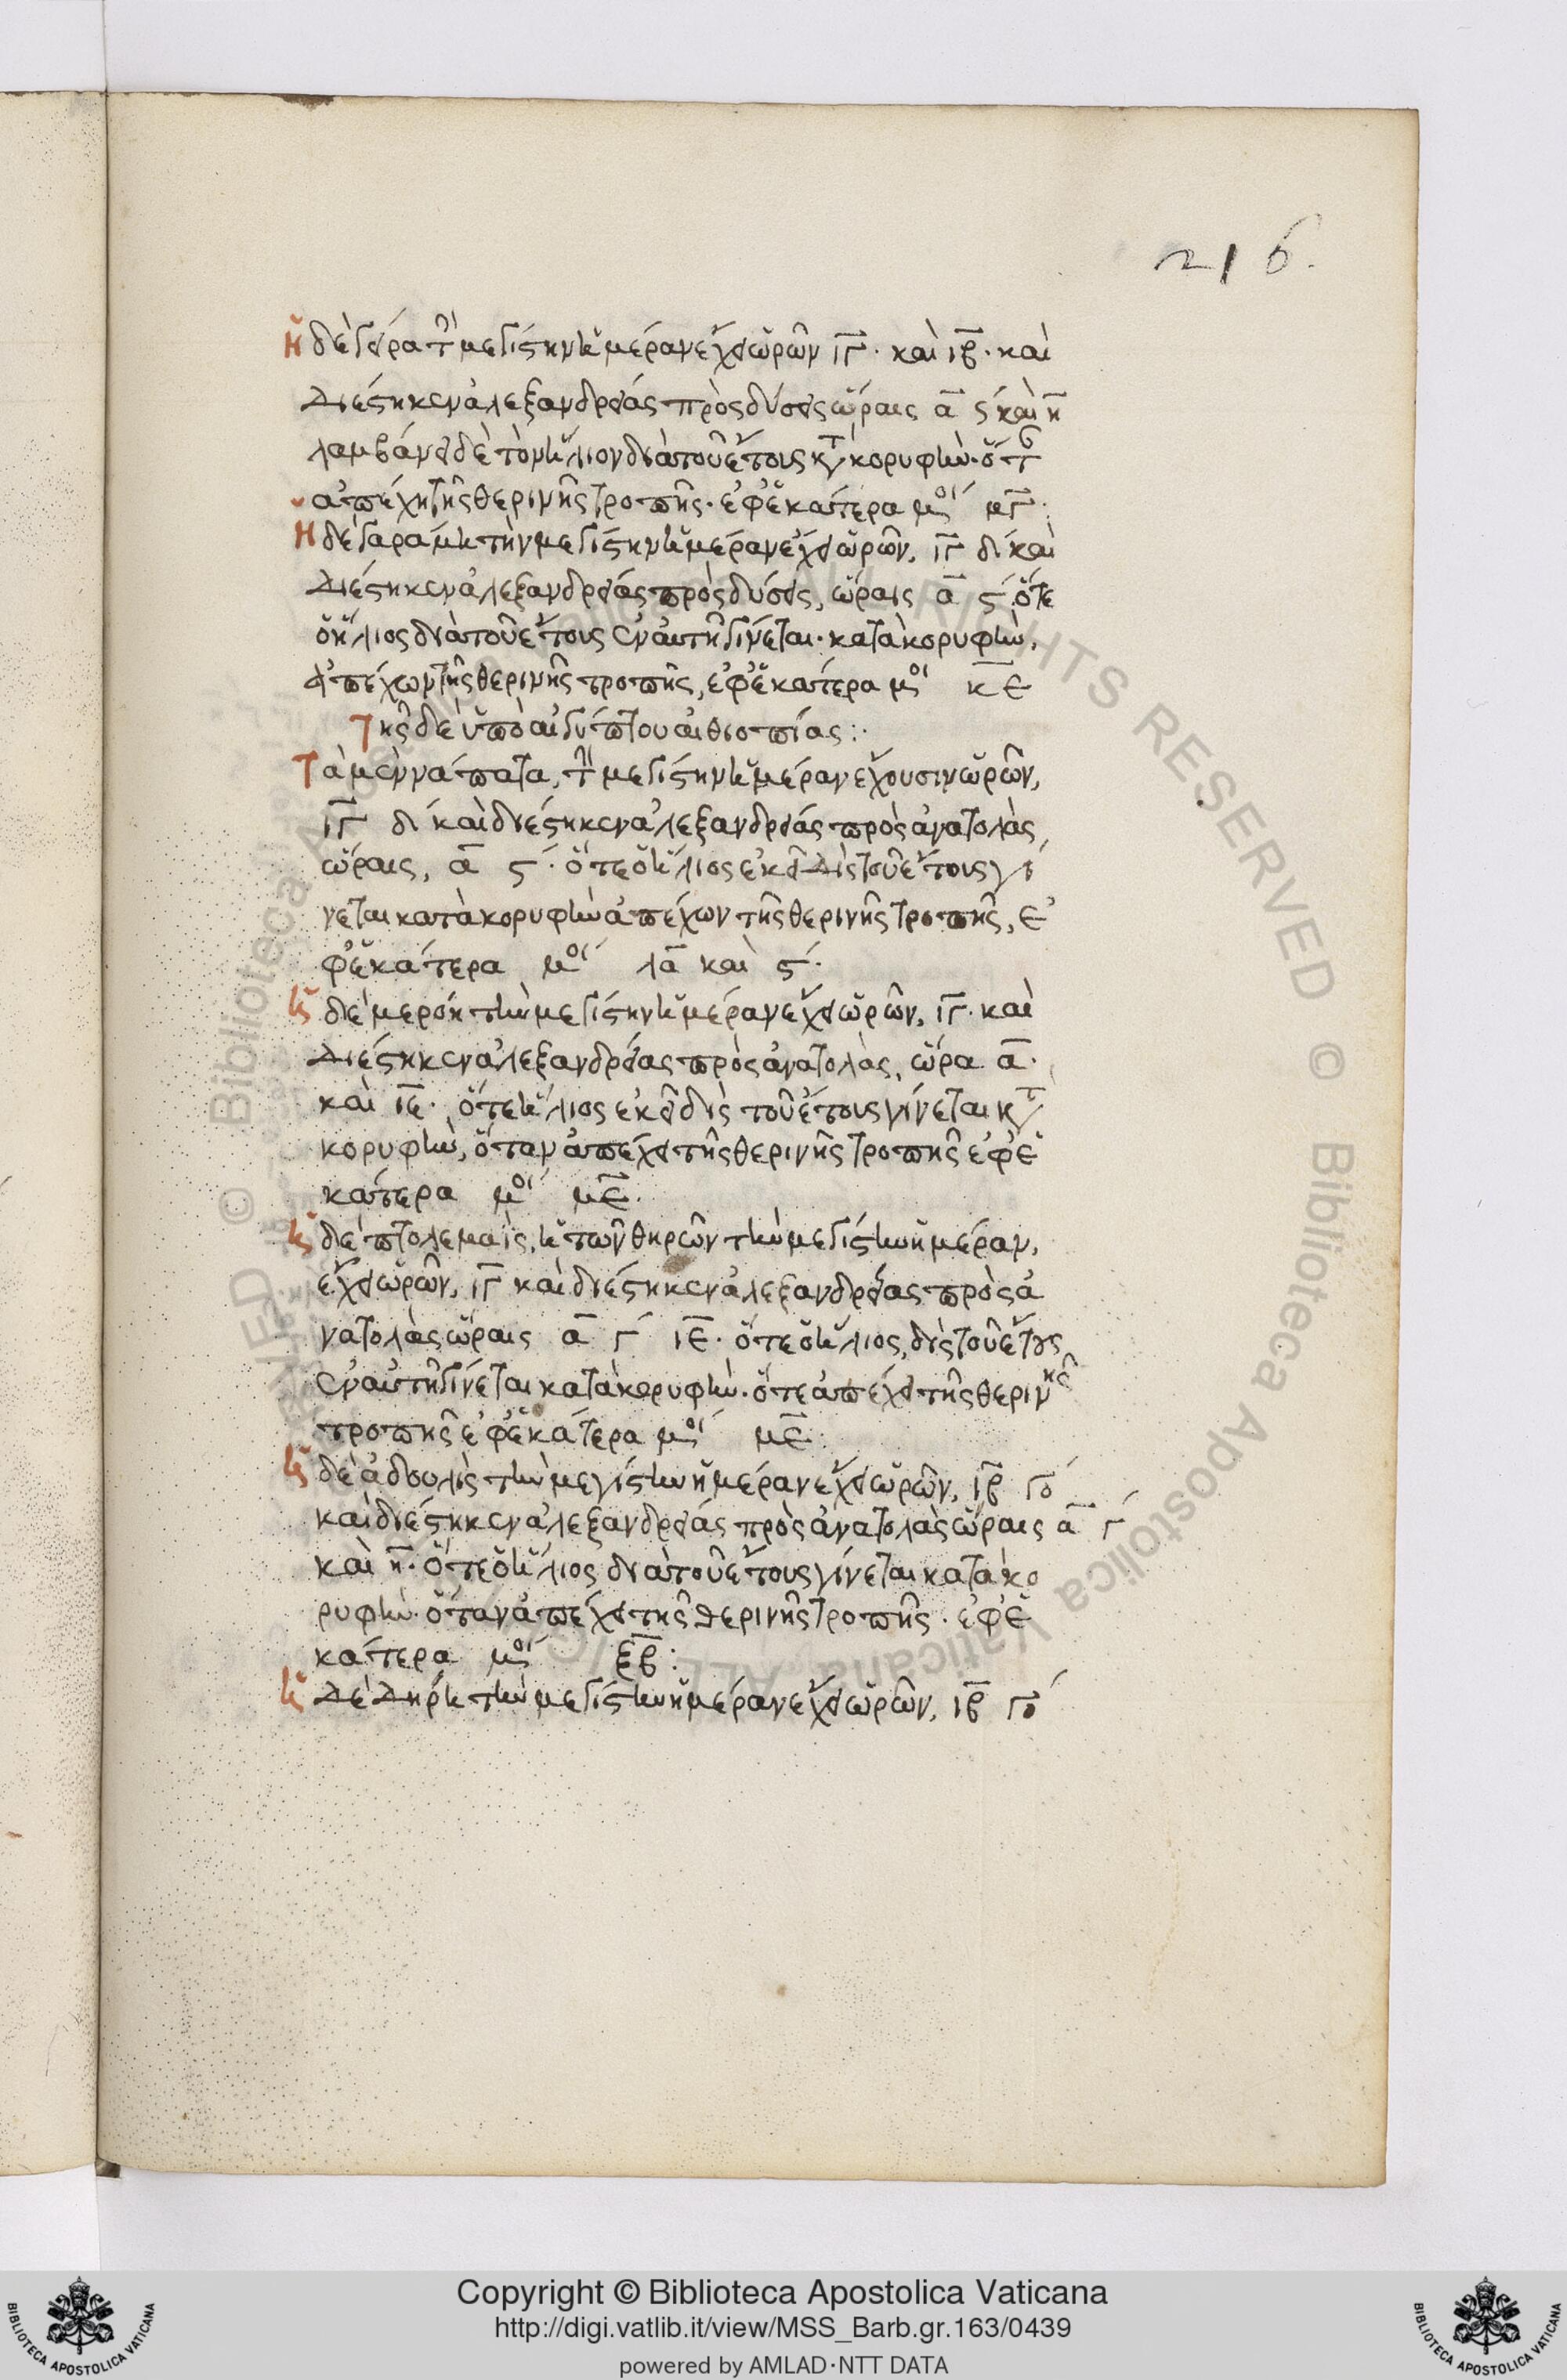 216.
ἡ δὲ γείρα τὴν μεγίστην ἡμέραν ἔχει ὡρῶν ιγ· καὶ ιβ· καὶ
διέστηκεν ἀλεξανδρείας πρὸς δύσεις ὥραις α ϛ´ καὶ η
λαμβάνει δὲ τὸν ἥλιον δὶς τοῦ ἔτους κατὰ κορυφὴν· ὅταν
ἀπέχῃ τῆς θερινῆς τροπῆς· ἐφ' ἑκάτερα μοί μγ·
Ἡ δὲ γαράμη τὴν μεγίστην ἡμέραν ἔχει ὡρῶν, ιγ δ´ καὶ
διέστηκεν ἀλεξανδρείας πρὸς δύσεις, ὥραις α ϛ´ ὅτε
ὁ ἥλιος δὶς τοῦ ἔτους ἐν αὐτῇ γίνεται· κατὰ κορυφὴν,
ἀπέχων τῆς θερινῆς τροπῆς, ἐφ' ἑκάτερα μοί κε
Τῆς δὲ ὑπὸ αἰγύπτου αἰθιοπίας:·
Τὰ μὲν νάπατα, τὴν μεγίστην ἡμέραν ἔχουσιν ὡρῶν,
ιγ δ´ καὶ διέστηκεν ἀλεξανδρείας πρὸς ἀνατολὰς
ὥραις, α ϛ´· ὅτε ὁ ἥλιος ἐκεῖ δὶς τοῦ ἔτους γί
νεται κατὰ κορυφὴν ἀπέχων τῆς θερινῆς τροπῆς, ἐ
φ' ἑκάτερα μοί λα καὶ ϛ´·
ἡ δὲ μερόη τὴν μεγίστην ἡμέραν ἔχει ὡρῶν, ιγ· καὶ
διέστηκεν ἀλεξανδρείας πρὸς ἀνατολὰς, ὥρα α·
καὶ ιε· ὅτε ἥλιος ἐκεῖ δὶς τοῦ ἔτους γίνεται κατὰ
κορυφὴν, ὅταν ἀπέχει τῆς θερινῆς τροπῆς ἐφ' ἑ
κάτερα μοί με·
ἡ δὲ πτολεμαὶς, ἡ τῶν θηρῶν τὴν μεγίστην ἡμέραν,
ἔχει ὡρῶν, ιγ καὶ διέστηκεν ἀλεξανδρείας πρὸς ἀ
νατολὰς ὥραις α γ´ ιε· ὅτε ὁ ἥλιος, δὶς τοῦ ἔτους
ἐν αὐτῇ γίνεται κατὰ κορυφὴν· ὅτε ἀπέχει τῆς θερινῆς
τροπῆς ἐφ' ἑκάτερα μοί με
ἡ δὲ ἀδουλὶς τὴν μεγίστην ἡμέραν ἔχει ὡρῶν, ιβ γο´
καὶ διέστηκεν ἀλεξανδρείας πρὸς ἀνατολὰς ὥραις α γ´
καὶ η· ὅτε ὁ ἥλιος δὶς τοῦ ἔτους γίνεται κατὰ κο
ρυφὴν· ὅταν ἀπέχει τῆς θερινῆς τροπῆς· ἐφ' ἑ
κάτερα μοί ξβ:
ἡ δὲ δηρὴ τὴν μεγίστην ἡμέραν ἔχει ὡρῶν, ιβ γο´
Copyright © Biblioteca Apostolica Vaticana
http://digi.vatlib.it/view/MSS_Barb.gr.163/0439
powered by AMLAD·NTT DATA